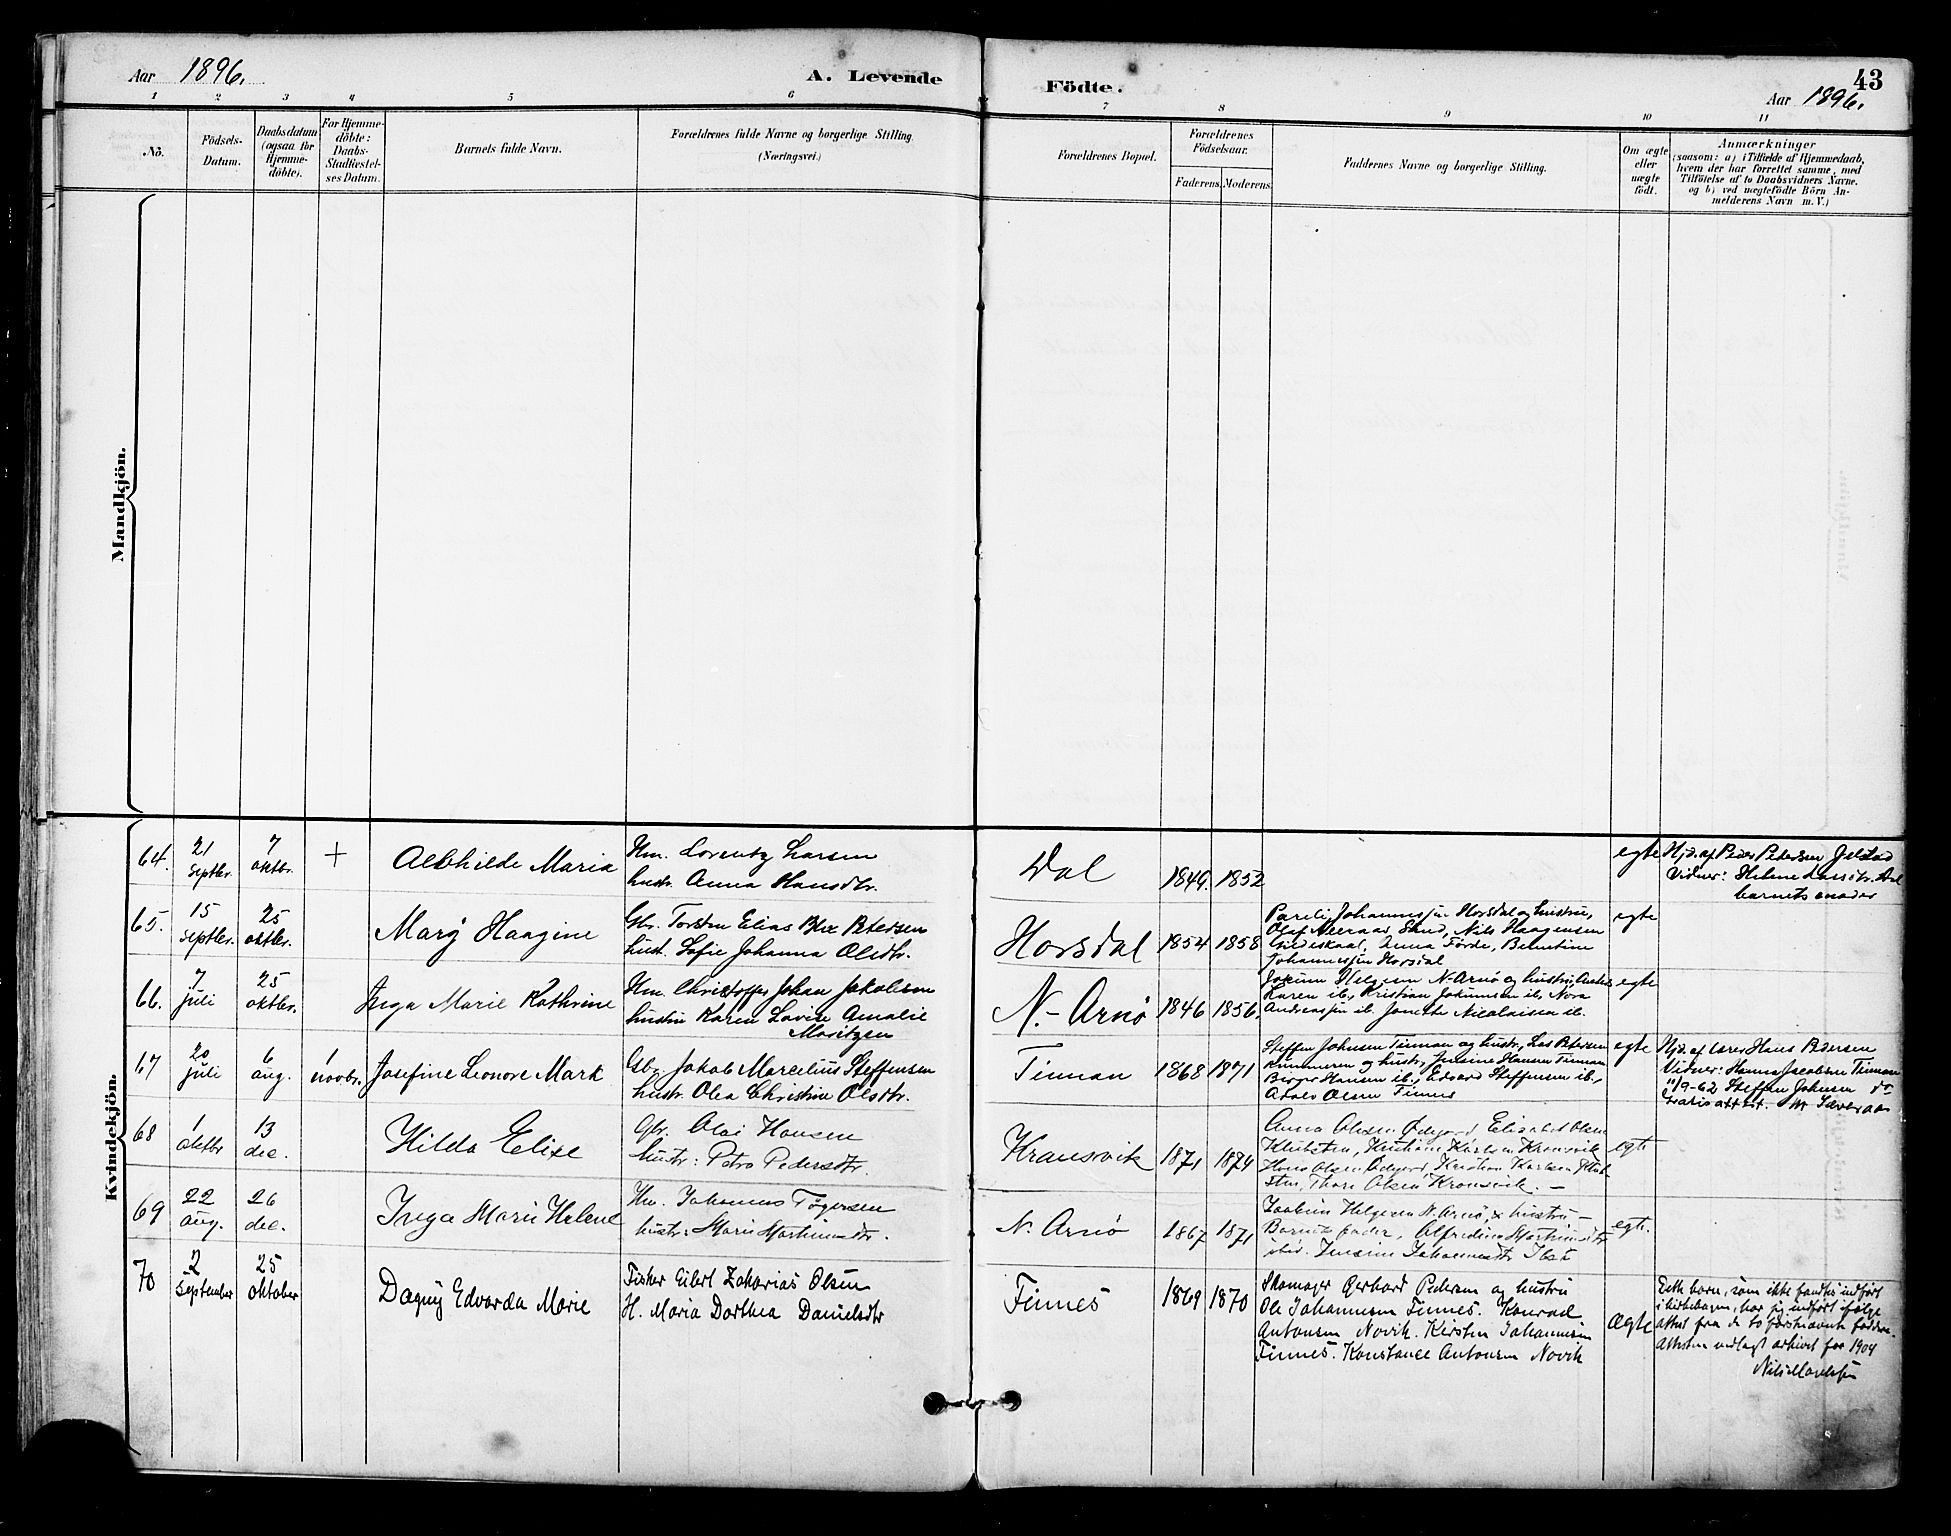 43
Aar 1896.
A. Levende
Födte.
Aar 1896.
1 2 3 4 5 6 7 8 9 10 11
No.
Födsels-
Datum.
Daabsdatum
(ogsaa for
Hjemme-
döbte).
For Hjemme-
döbte:
Daabs-
Stadfæstel-
ses Datum.
Barnets fulde Navn.
Forældrenes fulde Navne og borgerlige Stilling.
(Næringsvei.)
Forældrenes Bopæl.
Forældrenes
Födselsaar.
Faderens.
Moderens.
Faddernes Navne og borgerlige Stilling.
Om ægte
eller
uægte
födt.
Anmærkninger
(saasom: a) i Tilfælde af Hjemmedaab,
hvem der har forrettet samme, med
Tilföielse af to Daabsvidners Navne.
og b) ved uægtefödte Börn An-
melderens Navn m. V.)
Mandkjön.
Kvindekjön.
64.
21
Septbr.
7
oktbr.
+
Maria
Hm. Lorentz Larsen
hustr. Anna Hansdtr.
Dal
1849. 1852
egte
Hjd. af Peder Petersen
Vidner: Helene
barnets moder
65.
15
Septbr.
25
oktbr.
Mary Haagine
Gbr. Torsten Elias Petersen
hust. Sofie Johanna Olsdtr.
Horsdal
1854 1858
Johannesen Horsdal og hustru,
Olaf Skud, Nils Haagensen
Gildeskaal, Anna Förde, Berntine
Johannesen Horsdal
egte
66.
7
juli
25
oktbr.
Inga Marie Kathrine
Hm. Christoffer Johan Jakobsen
hustru Karen Lovise Amalie
Moritzen
N.-Arnø
1846 1856.
Helgesen N-Arnø og hustru,
Karen ib., Kristian Johannsen ib. Nora
Andreassen ib. Janette Nicolaisen ib.
egte
67
20
juli
6
aug.
1
novbr.
Josefine Leonore Mark
Gbr. Jakob Marcelius Steffensen
hustr. Olea Christine Olsdtr.
Finnan
1868 1871
Steffen Johnsen og hustr, Petersen
og hustr, Jensine Hansen
Birger Hansen ib., Edvard Steffensen ib.,
Olsen Finnes
egte
Hjd. af lærer Hans Pedersen
Vidner: Hanna Jacobsen
Steffen Johnsen do
11/9-62 Gratis attest.
68
1
oktbr
13
dec.
Hilda Elise
Gbr. Olai Hansen
hustr: Petra Pedersdtr.
Kransvik
1871 1874
Anna Olsen Ødegaard Elisabet Olsen
Karlsen Kransvik
Hans Olsen Ødegaard, Kristian Karlsen
Olsen Kransvik. –
egte
69
22
aug.
26
dec.
Inga Marie Helene
Hm. Johannes Tøgersen
hustr: Marie Martinusdtr.
N. Arnø
1867 1871
Helgesen N. Arnø, & hustru –
Barnets fader, Alfredine
ibid. Johannesdtr
egte.
70
2
september
25
oktober
Dagny Edvarda Marie
Fisker Eilert Zakarias Olsen
H. Maria Dorthea Danielsdtr
Finnes
1869 1870
Skomager Gerhard Pedersen og hustru
Ole Johannesen Finnes. Konrad
Antonsen Novik. Kirsten Johannesen
Finnes. Konstance Antonsen Novik
Ægte
Dette barn, som ikke fandtes indført
i kirkebogen, har jeg indført ifølge
attest fra de to førstnævnte faddere.
Attesten vedlagt arkivet for 1904